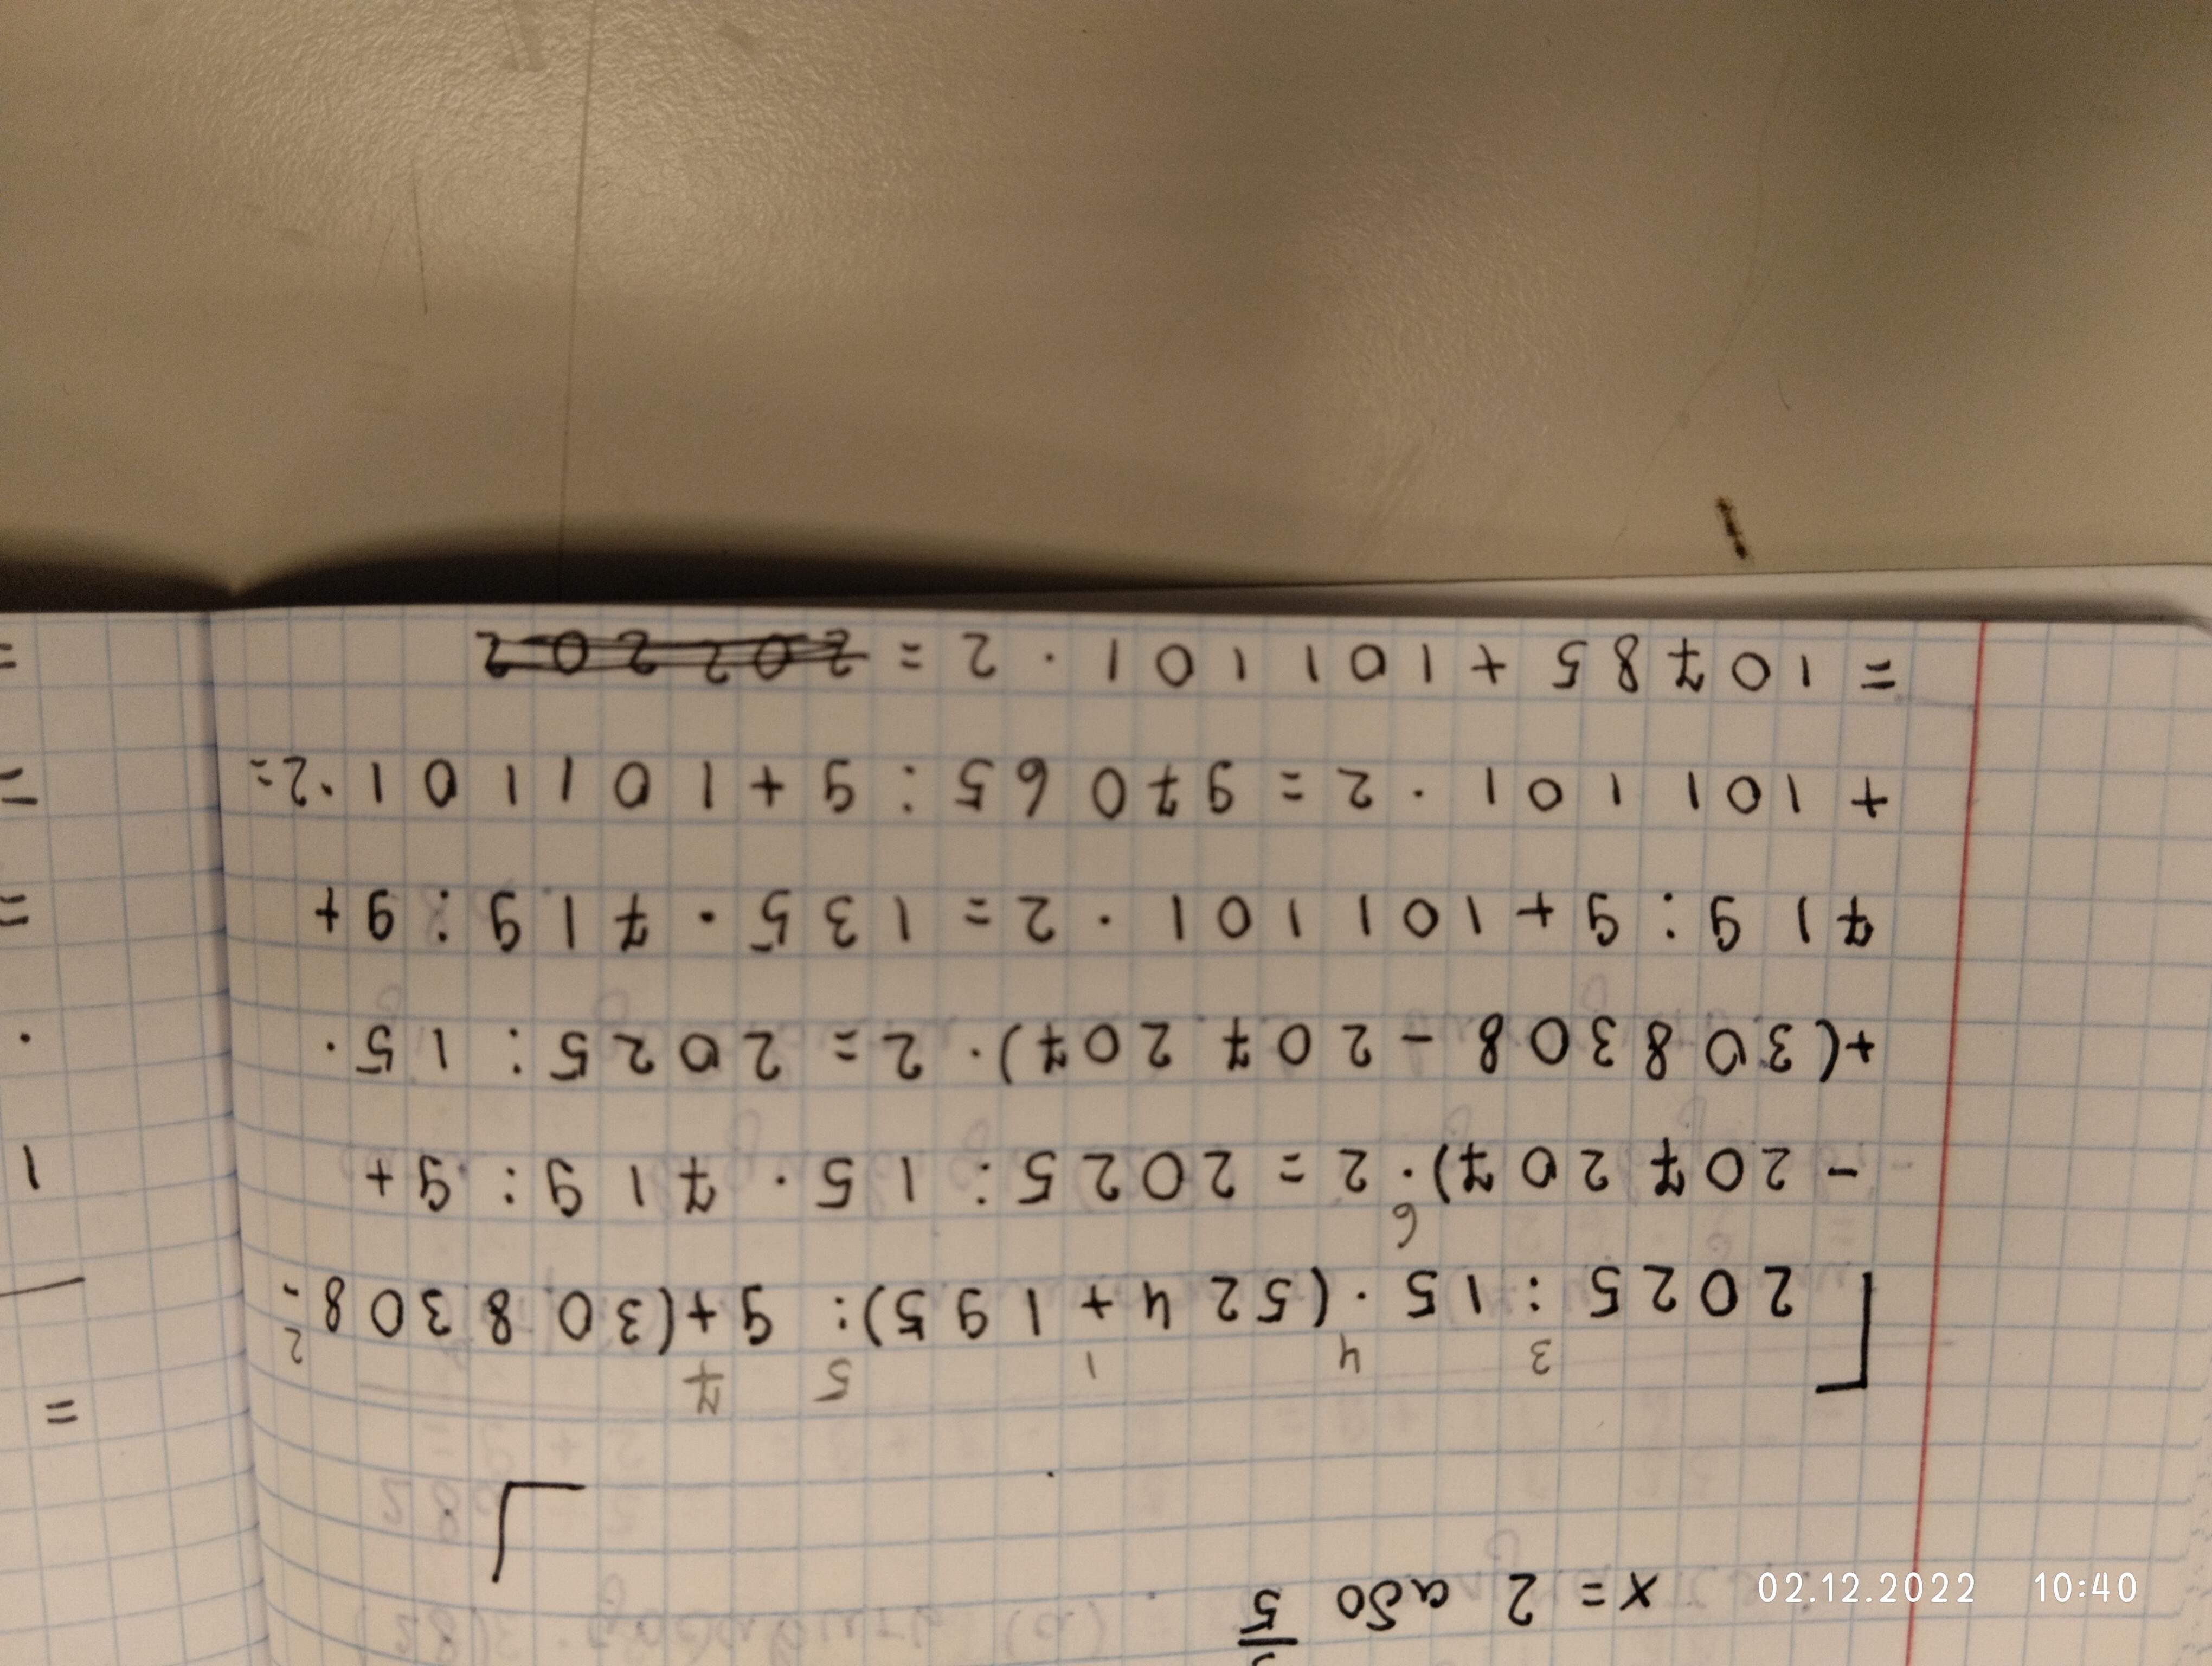 x = 2 або
5
3 4 1 5 7 2
2025 : 15 · (524 + 195) : 9 + (308308 -
6
- 207207) · 2 = 2025 : 15 · 719 : 9 +
+ (308308 - 207207) · 2 = 2025 : 15 ·
719 : 9 + 101101 · 2 = 135 · 719 : 9 +
+ 101101 · 2 = 97065 : 9 + 101101 · 2 =
= 10785 + 101101 · 2 = 202202
=
1
·
=
=
=
02.12.2022 10:40